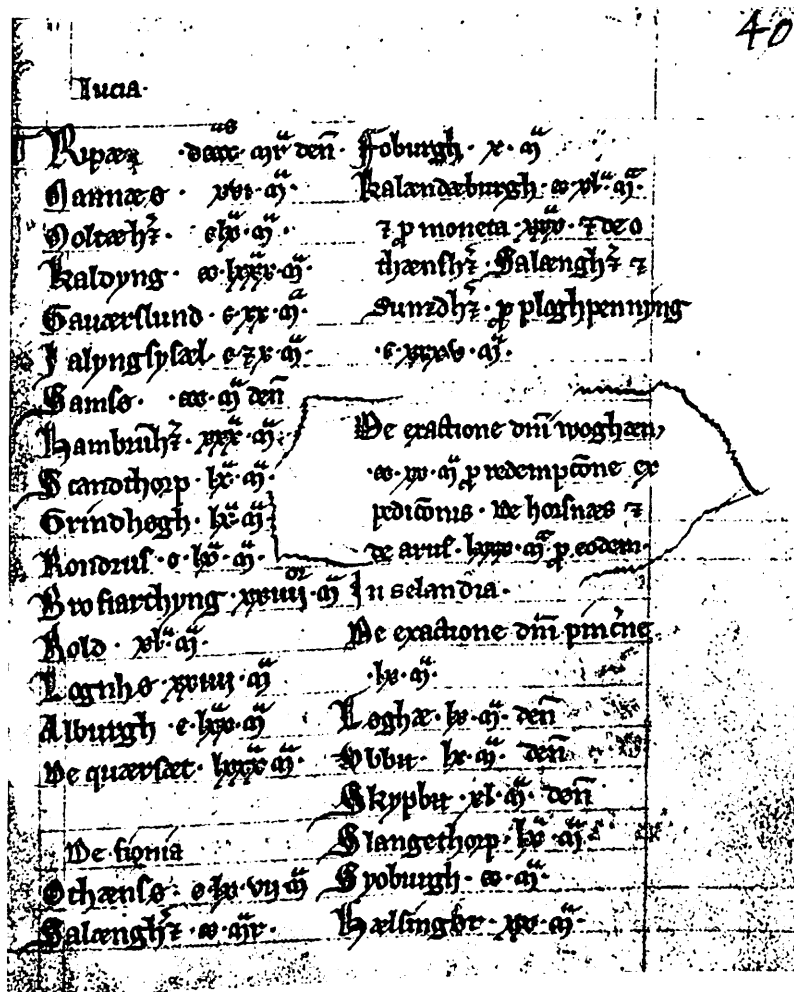 40
Iucia·
Ripæ · dccc mr den̄ ·
Mannæs · xvi · m̄ ·
Kaldyng · cc · lxxx · m̄ ·
Gauærslund · c · xx · m̄ ·
Ialyngsysæl · c ⁊ x · m̄ ·
Samsø · cc · m̄ den̄
Hambruh̄⁊ · xxx · m̄ ·
Scandthorp · lx · m̄ ·
Grindhøgh · lx · m̄ ·
Rondrus · c · lx · m̄ ·
Brofiarthyng · xxiiii · m̄
Hold · xl · m̄ ·
Løgnhø · xxiiii · m̄
Alburgh · c · lxx · m̄
De quærsæt · lxxx · m̄ ·
De fionia
Othænsø · c · lx · vii · m̄
Salængh⁊ · cc · mr ·
Foburgh · x · m̄
Kalændæburgh · cc · xl · m̄ ·
⁊ ꝑ moneta · xxx · ⁊ de o
thænsh⁊ · Salængh⁊ ⁊
Sundh⁊ · ꝑ ploghpennyng
· c · xxxv · m̄ ·
De exactione dn̄i woghæn,
· cc · xv · m̄ ꝑ redempcōne ex
pedic̄onis · De horsnæs ⁊
de arus · lxxx · m̄ ꝑ eodem ·
In selandia ·
De exactione dn̄i
· lx · m̄ ·
Løghæ · lx · m̄ · den̄
Vbbu · lx · m̄ · den̄
Skypbu · xl · m̄ · den̄
Slangethorp · lx · m̄ ·
Syoburgh · cc · m̄ ·
Hælsingbr · xx · m̄ ·